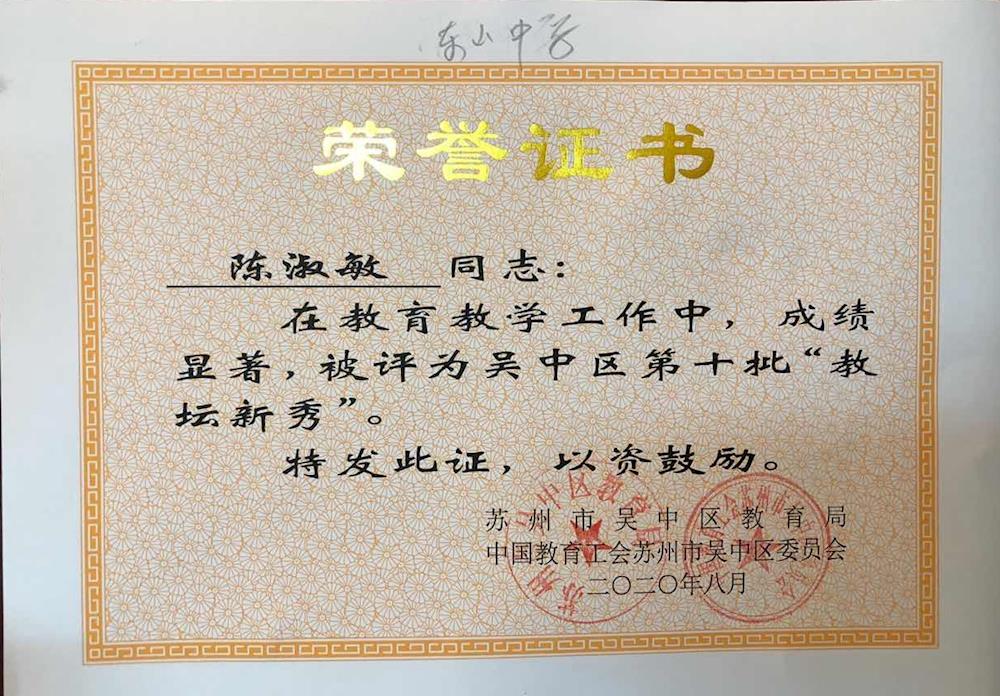 东山中学
荣誉证书
陈淑敏 同志：
在教育教学工作中，成绩
显著，被评为吴中区第十批“教
坛新秀”。
特发此证，以资鼓励。
苏州市吴中区教育局
中国教育工会苏州市吴中区委员会
二〇二〇年八月